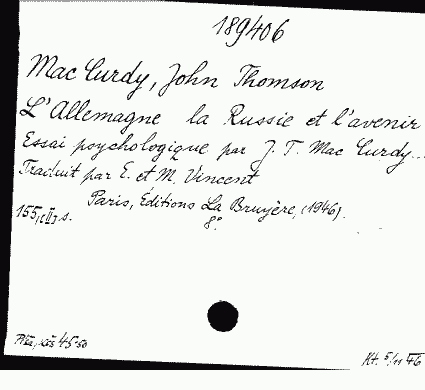 189406
Mac Curdy, John Thomson
L'Allemagne la Russie et l'avenir
Essai psychologique par J. T. Mac Curdy...
Traduit par E. et M. Vincent
Paris, Éditions La Bruyère, (1946).
155, [II] s. 8°.
45-50
Kt. 5/11 46